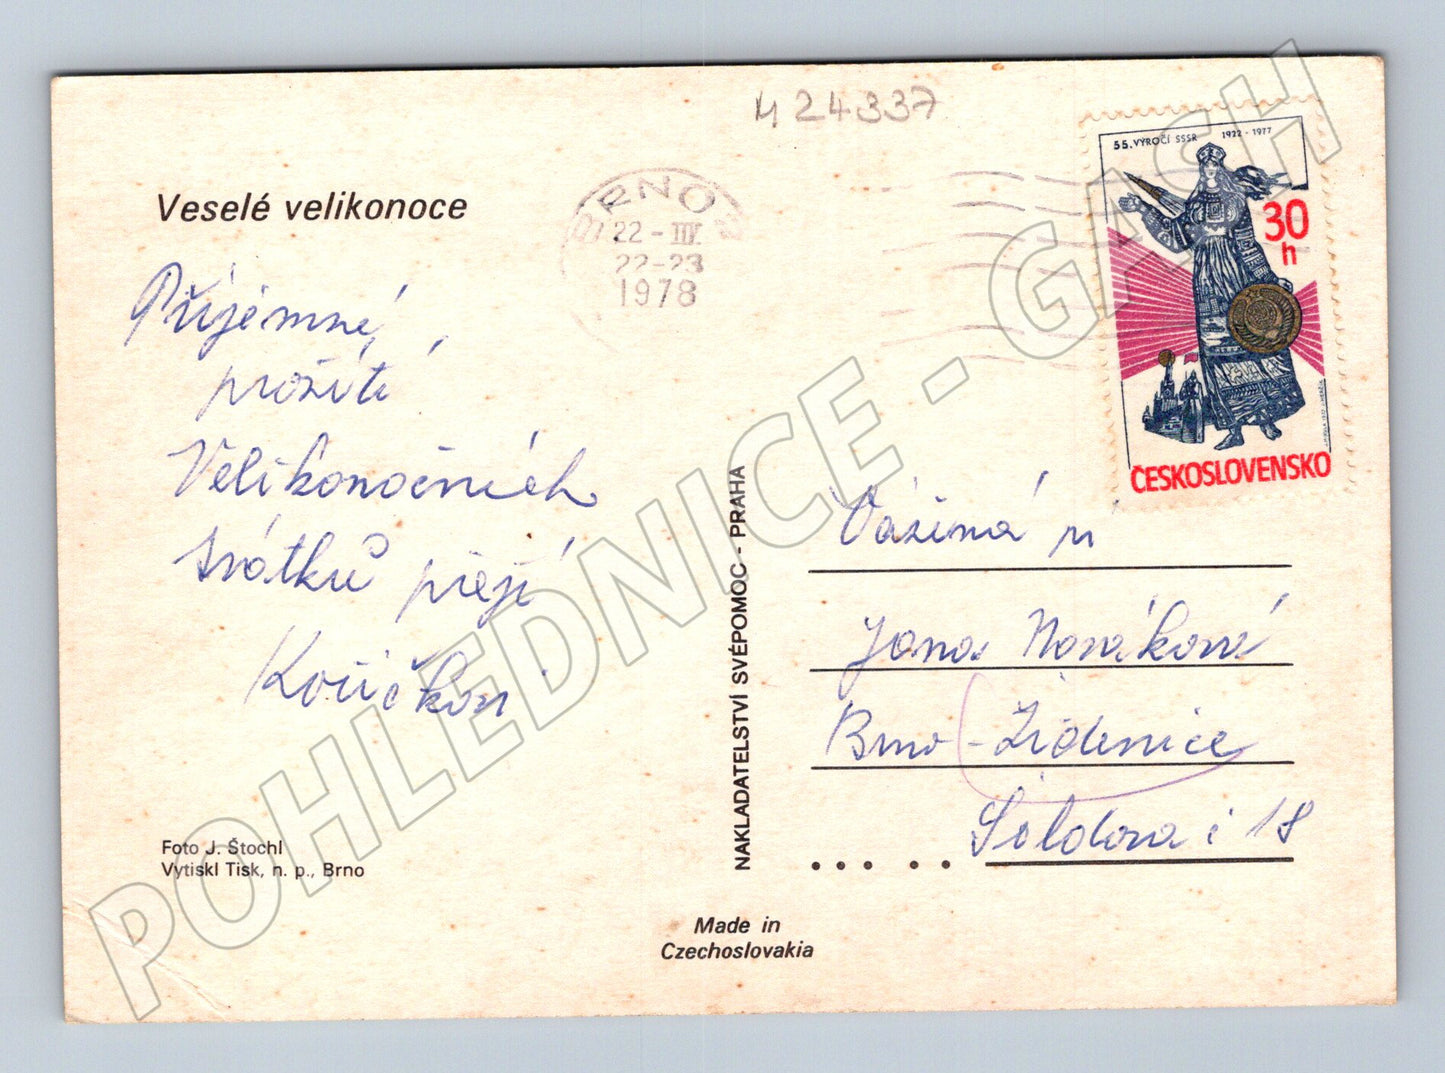 M 24337
Veselé velikonoce
BRNO 2
22-III
22-23
1978
55. VÝROČÍ SSSR 1922-1977
30
h
ČESKOSLOVENSKO
Příjemné
prožití
Velikonočních
svátků přejí
Vážená
Jana Nováková
Brno - Židenice
18
NAKLADATELSTVÍ SVÉPOMOC - PRAHA
Foto J. Štochl
Vytiskl Tisk, n. p., Brno
Made in
Czechoslovakia
POHLEDNICE - GASH